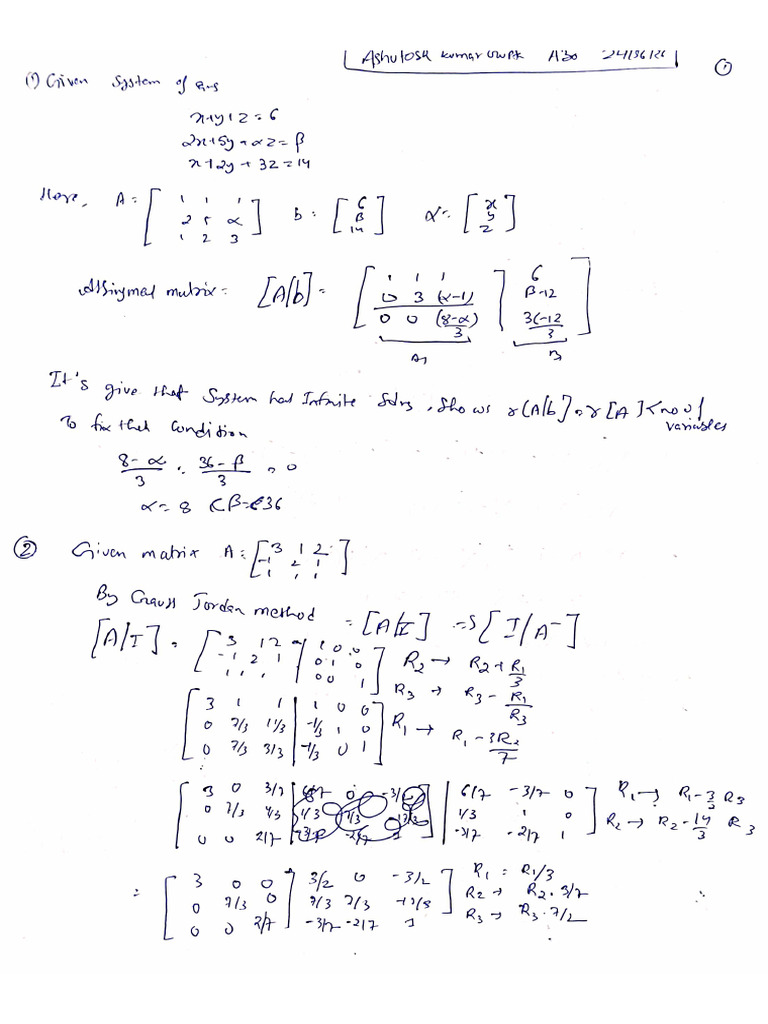 Ashutosh Kumar A30
①
(1) Given System of
x+y+z=6
2x+5y+αz=β
x+2y+3z=14
Here, A = [1 1 1; 2 5 α; 1 2 3] b = [6; β; 14] x = [x; y; z]
matrix = [A/b] = [1 1 1; 0 3 (α-1); 0 0 (8-α)/3] [6; β-12; ]
It's give that System has Infinite Solns, Shows r(A/b) = r[A] < no of variables
To fix that Condition
8-α/3 , 36-β/3 = 0
α = 8 β = 36
② Given matrix A = [3 1 2; -1 2 1; 1 1 1]
By Gauss Jordan method = [A/I] => [I/A⁻]
[A/I] = [3 1 2; -1 2 1; 1 1 1 | 1 0 0; 0 1 0; 0 0 1] R2 → R2 + R1/3
R3 → R3 - R1/R3
[3 1 1; 0 7/3 ; 0 7/3 3/3 | 1 0 0; -1/3 1 0; -1/3 0 1] R1 → R1 - 3R2/7
[3 0 3/7; 0 7/3 ; 0 0 2/7 | 6/7 -3/7 0; 1/3 1 0; -2/7 1] R1 → R1 - 3/2 R3
R2 → R2 - 14/3 R3
= [3 0 0; 0 7/3 0; 0 0 2/7 | 3/2 0 -3/2; 7/3 7/3 ; -3/7 -2/7 1] R1 = R1/3
R2 → R2 · 3/7
R3 → R3 · 7/2